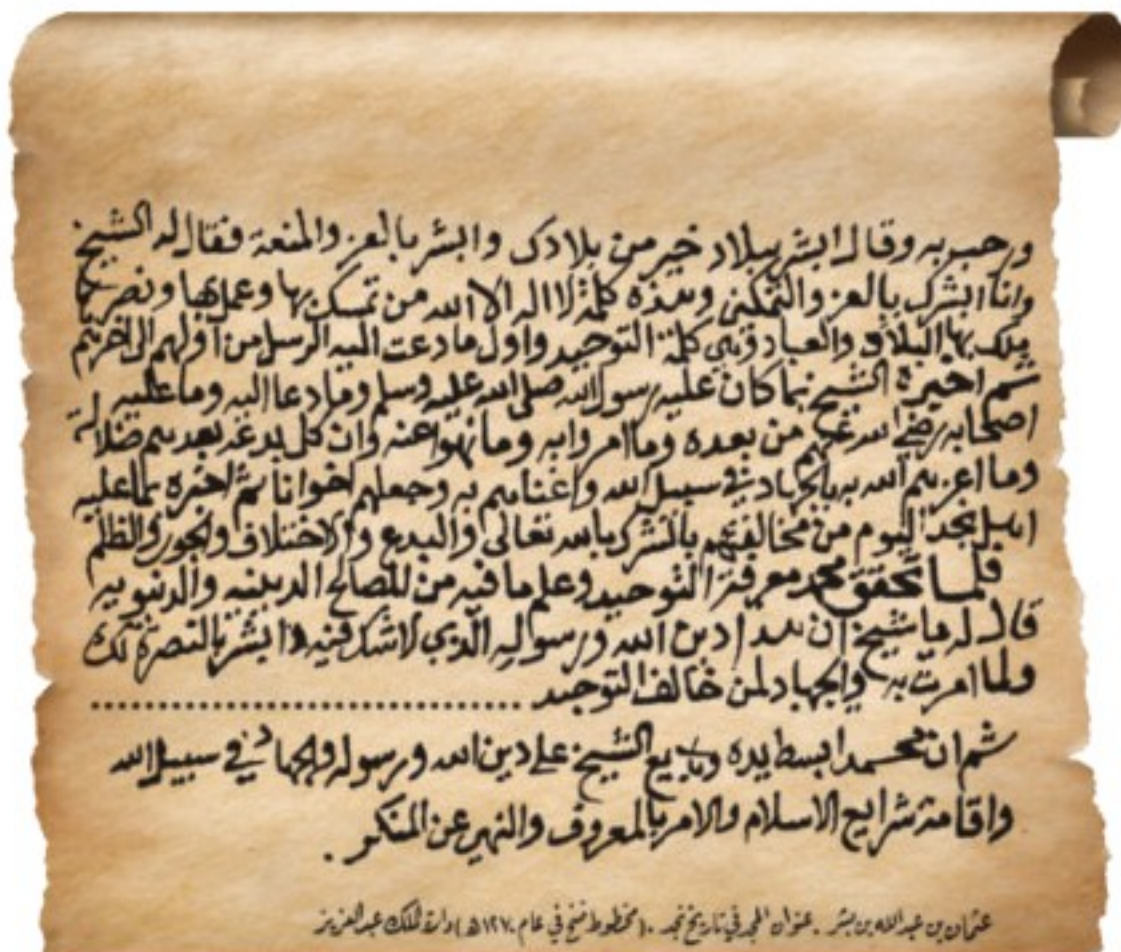 ورحب به وقال ابشر ببلاد خير من بلادك وابشر بالعز والمنعة فقال له الشيخ
وانا ابشرك بالعز والتمكن وهذه كلمة لا اله الا الله من تمسك بها وعمل بها ونصرها
ملك بها البلاد والعباد وهي كلمة التوحيد واول ما دعت اليه الرسل من اولهم الى اخرهم
ثم اخبره الشيخ بما كان عليه رسول الله صلى الله عليه وسلم وما دعا اليه وما عليه
اصحابه رضي الله عنهم من بعده وما امروا به وما نهوا عنه وان كل بدعة بعدهم ضلالة
وما اعزهم الله به بالجهاد في سبيل الله واغناهم به وجعلهم اخوانا ثم اخبره بما عليه
اهل نجد اليوم من مخالفتهم بالشرك بالله تعالى والبدع والاختلاف والجور والظلم
فلما تحقق محمد معرفة التوحيد وعلم ما فيه من المصالح الدينيه والدنيويه
قال له يا شيخ ان هذا دين الله ورسوله الذي لا شك فيه وابشر بالنصرة لك
ولما امرت به والجهاد لمن خالف التوحيد ................................
ثم ان محمدا بسط يده وبايع الشيخ على دين الله ورسوله والجهاد في سبيل الله
واقامة شرايع الاسلام والامر بالمعروف والنهي عن المنكر .
عثمان بن عبدالله بن بشر . عنوان المجد في تاريخ نجد . (مخطوط نسخ في عام ١٢٧٠ه) دارة الملك عبدالعزيز